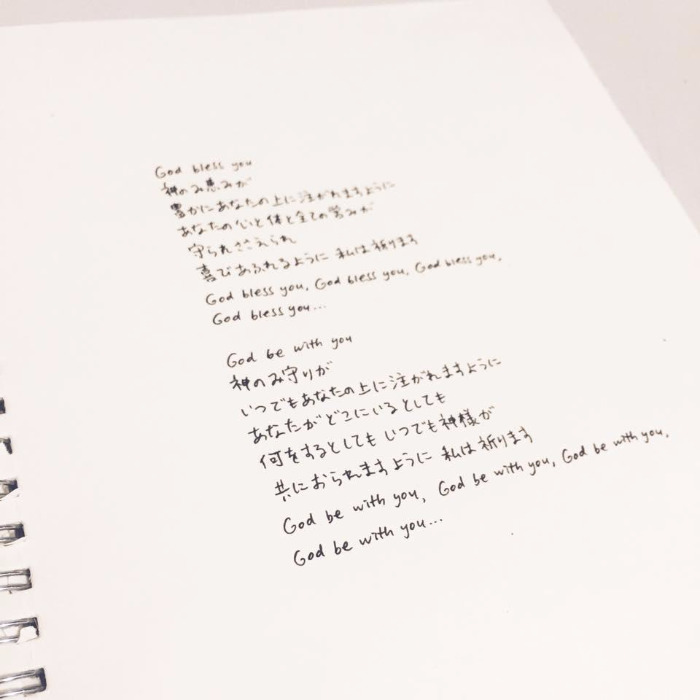 God bless you
神のみ恵みが
豊かにあなたの上に注がれますように
あなたの心と体と全ての営みが
守られささえられ
喜びあふれるように 私は祈ります
God bless you, God bless you, God bless you,
God bless you...
God be with you
神のみ守りが
いつでもあなたの上に注がれますように
あなたがどこにいるとしても
何をするとしても いつでも神様が
共におられますように 私は祈ります
God be with you, God be with you, God be with you,
God be with you...